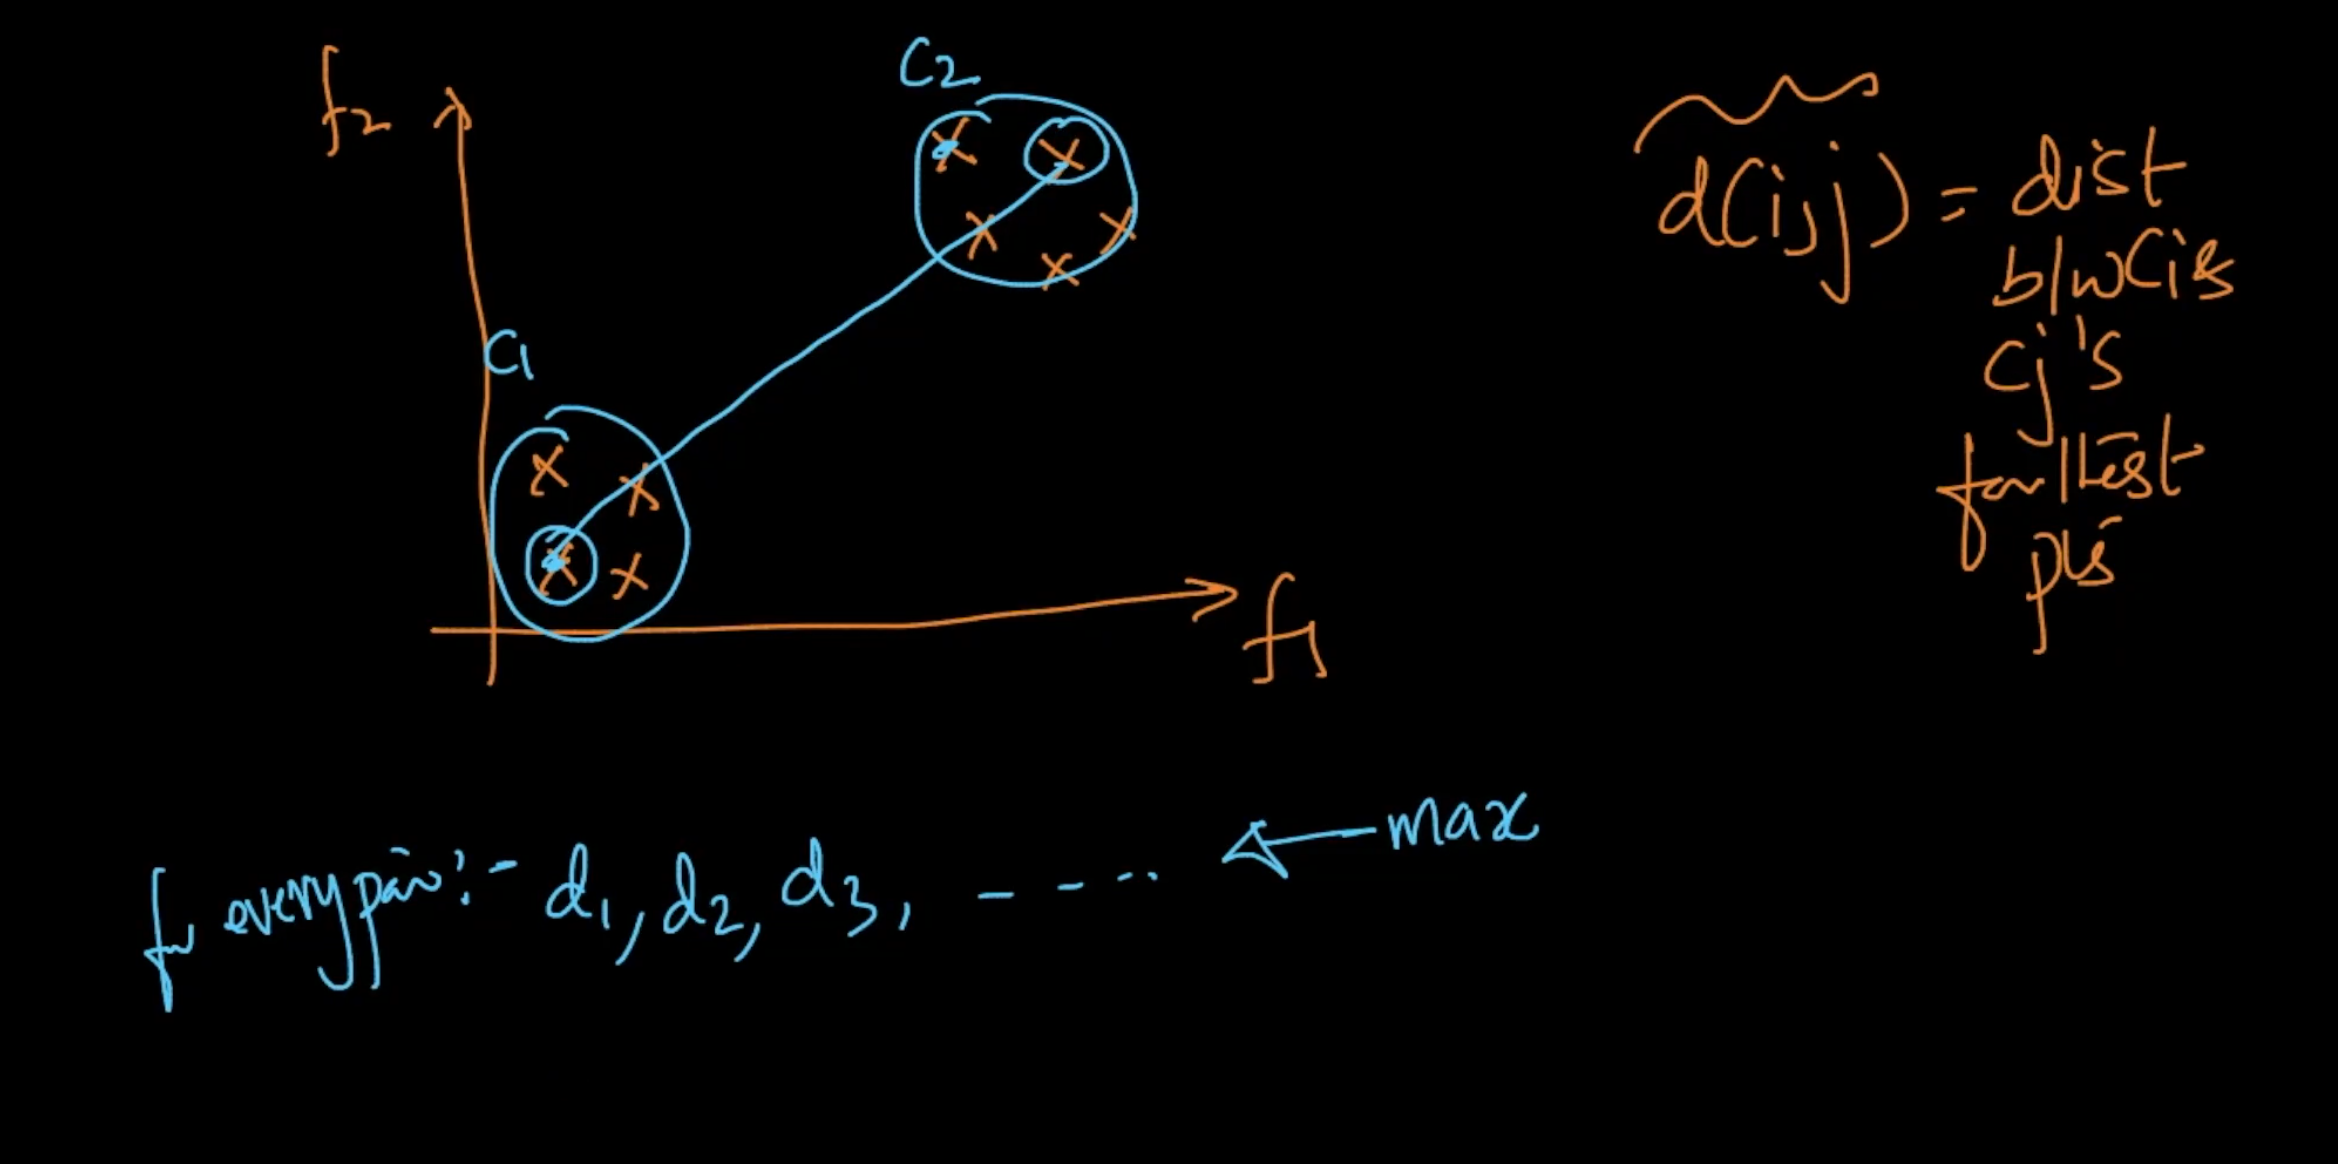 f2
C2
C1
f1
d(i,j) = dist
b/w Ci &
Cj's
farthest
pts
for every pair:- d1, d2, d3, - - - - ← max